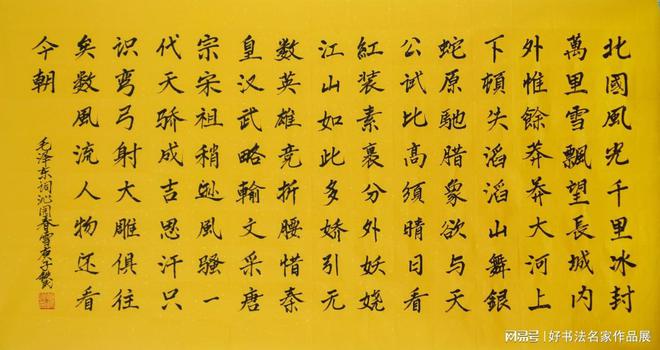 北國風光千里冰封
萬里雪飄望長城内
外惟餘莽莽大河上
下頓失滔滔山舞銀
蛇原馳腊象欲与天
公試比高須晴日看
紅装素裹分外妖娆
江山如此多娇引无
數英雄竞折腰惜秦
皇汉武略輸文采唐
宗宋祖稍逊風骚一
代天骄成吉思汗只
识弯弓射大雕俱往
矣数風流人物还看
今朝
毛泽东词沁园春雪庚子
网易号 | 好书法名家作品展